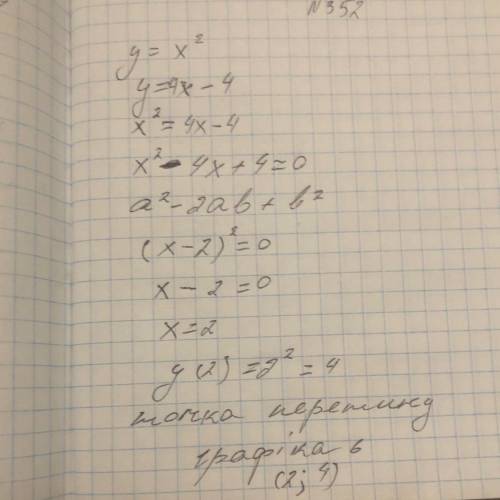 N352
y = x²
y = 4x - 4
x² = 4x - 4
x² - 4x + 4 = 0
a² - 2ab + b²
(x - 2)² = 0
x - 2 = 0
x = 2
y(2) = 2² = 4
точка перетину
графіка в
(2; 4)